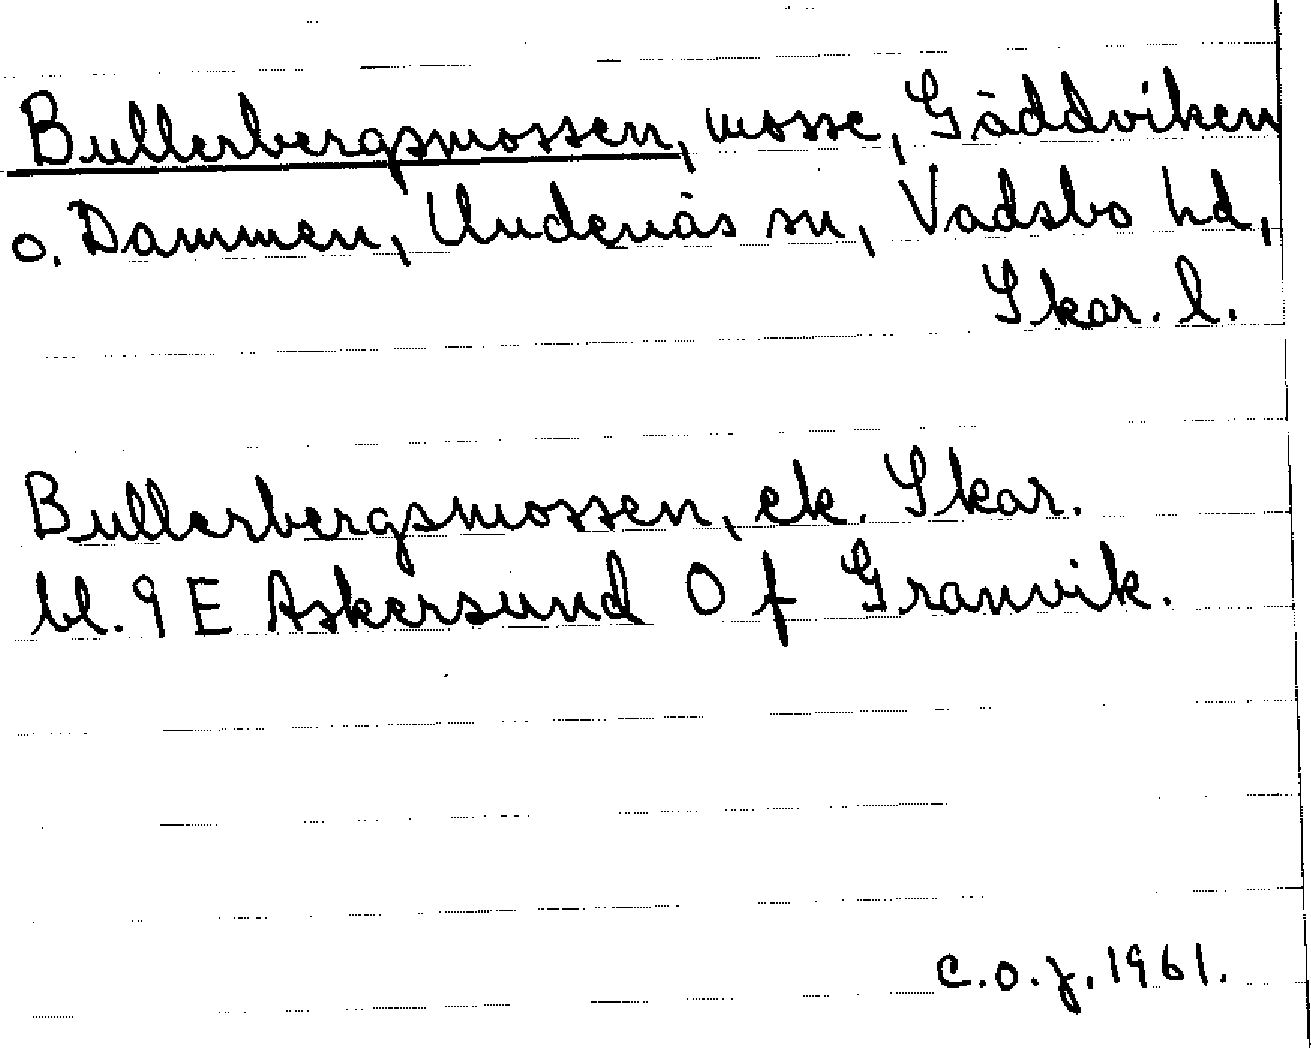 Bullerbergsmossen, mosse, Gäddviken
o. Dammen, Undenäs sn, Vadsbo hd,
Skar. l.
Bullerbergsmossen, ek. Skar.
bl. 9 E Askersund O f Granvik.
C.O.J. 1961.